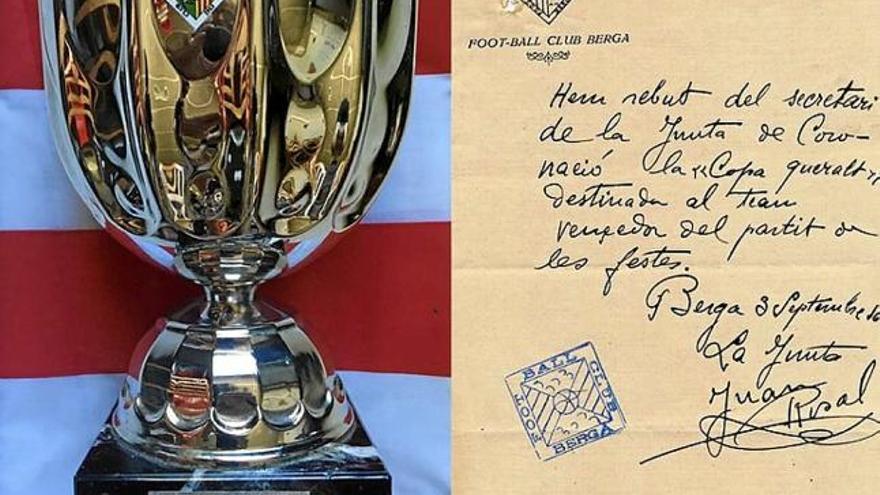 FOOT-BALL CLUB BERGA
Hem rebut del secretari
de la Junta de Coro-
nació la «Copa queralt»,
destinada al team
vencedor del partit de
les festes.
Berga 3 Septembre
La Junta
Juan Rosal
FOOT BALL CLUB BERGA